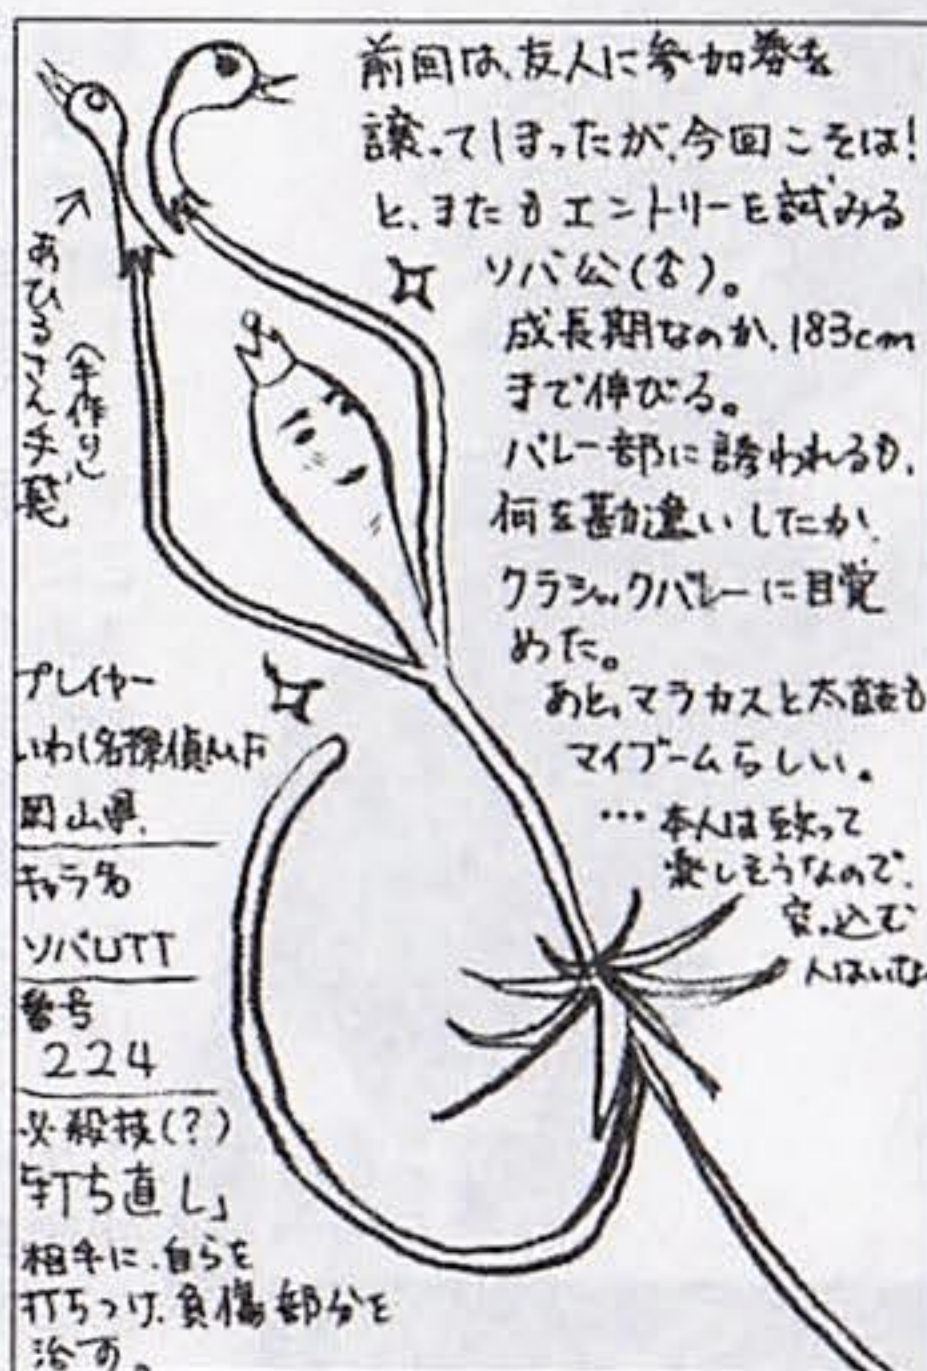 前回は、友人に参加券を
譲ってしまったが、今回こそは!
と、またもエントリーを試みる
ソバ公(♂)。
成長期なのか、183cm
まで伸びる。
バレー部に誘われるも、
何を勘違いしたか、
クラシックバレーに目覚
めた。
あと、マラカスと太鼓も
マイブームらしい。
…本人は至って
楽しそうなので、
突っ込む
人はいな
あひるさん手袋
(手作り)
プレイヤー
いわし名探偵MF
岡山県
キャラ名
ソバUTT
番号
224
必殺技(?)
「打ち直し」
相手に、自らを
打ちつけ、負傷部分を
治す。